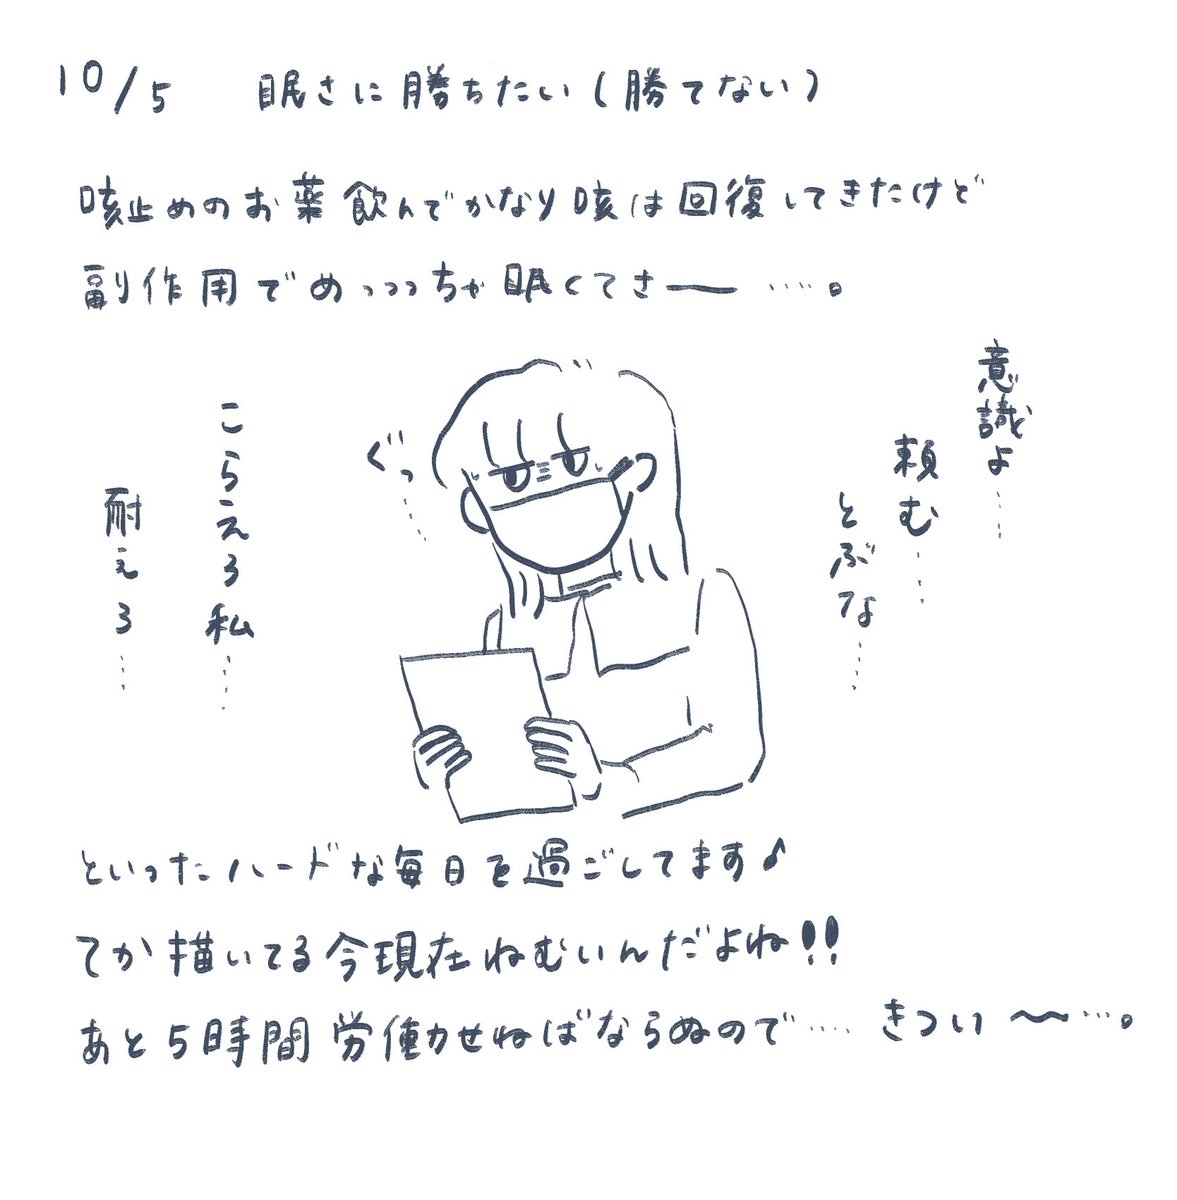 10/5 眠さに勝ちたい(勝てない)
咳止めのお薬飲んでかなり咳は回復してきたけど
副作用でめっっっちゃ眠くてさー……。
意識よ……
頼む……
とぶな……
ぐっ……
こらえろ私……
耐えろ……
といったハードな毎日を過ごしてます♪
てか描いてる今現在ねむいんだよね!!
あと5時間労働かせねばならぬので…… きつい〜……。